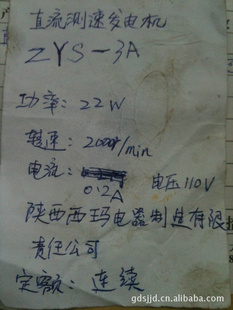 直流测速发电机
ZYS-3A
功率: 22W
转速: 2000r/min
电流:
0.2A 电压110V
陕西西玛电器制造有限
责任公司
定额: 连续
gdsjjd.cn.alibaba.com